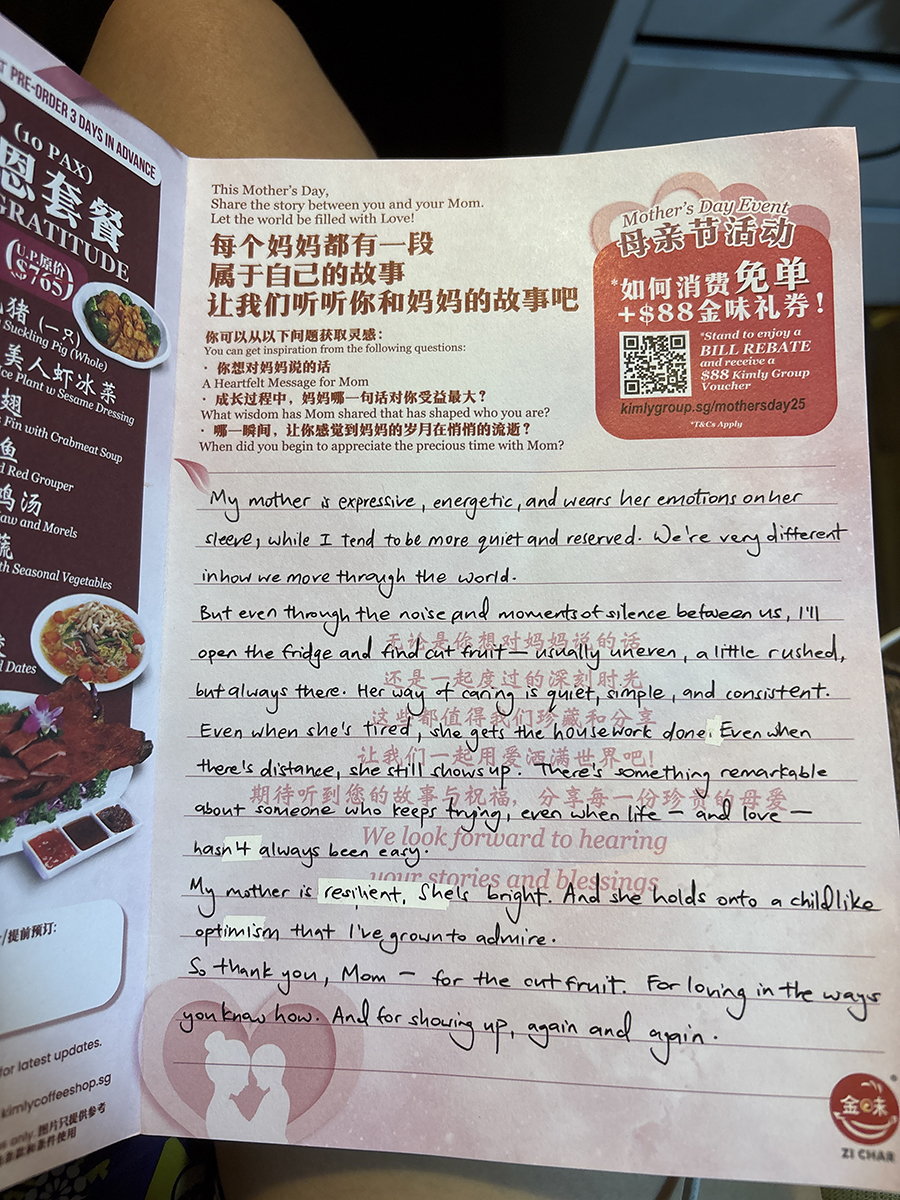 PRE-ORDER 3 DAYS IN ADVANCE
(10 PAX)
恩套餐
GRATITUDE
(U.P.原价
$765)
猪 (一只)
Suckling Pig (Whole)
美人虾冰菜
Ice Plant w Sesame Dressing
翅
Fin with Crabmeat Soup
鱼
Red Grouper
鸡汤
Maw and Morels
蔬
with Seasonal Vegetables
Dates
/提前预订:
for latest updates.
kimlycoffeeshop.sg
only. 图片只提供参考
条款和条件使用
This Mother's Day,
Share the story between you and your Mom.
Let the world be filled with Love!
每个妈妈都有一段
属于自己的故事
让我们听听你和妈妈的故事吧
你可以从以下问题获取灵感：
You can get inspiration from the following questions:
· 你想对妈妈说的话
A Heartfelt Message for Mom
· 成长过程中，妈妈哪一句话对你受益最大？
What wisdom has Mom shared that has shaped who you are?
· 哪一瞬间，让你感觉到妈妈的岁月在悄悄的流逝？
When did you begin to appreciate the precious time with Mom?
Mother's Day Event
母亲节活动
*如何消费免单
+$88金味礼券！
*Stand to enjoy a
BILL REBATE
and receive a
$88 Kimly Group
Voucher
kimlygroup.sg/mothersday25
*T&Cs Apply
My mother is expressive, energetic, and wears her emotions on her
sleeve, while I tend to be more quiet and reserved. We're very different
in how we move through the world.
But even through the noise and moments of silence between us, I'll
无论是你想对妈妈说的话
open the fridge and find cut fruit — usually uneven, a little rushed,
还是一起度过的深刻时光
but always there. Her way of caring is quiet, simple, and consistent.
这些都值得我们珍藏和分享
Even when she's tired, she gets the housework done. Even when
让我们一起用爱洒满世界吧！
there's distance, she still shows up. There's something remarkable
期待听到您的故事与祝福，分享每一份珍贵的母爱
about someone who keeps trying, even when life — and love —
We look forward to hearing
hasn't always been easy.
your stories and blessings
My mother is resilient. She's bright. And she holds onto a childlike
optimism that I've grown to admire.
So thank you, Mom — for the cut fruit. For loving in the ways
you know how. And for showing up, again and again.
金味
ZI CHAR